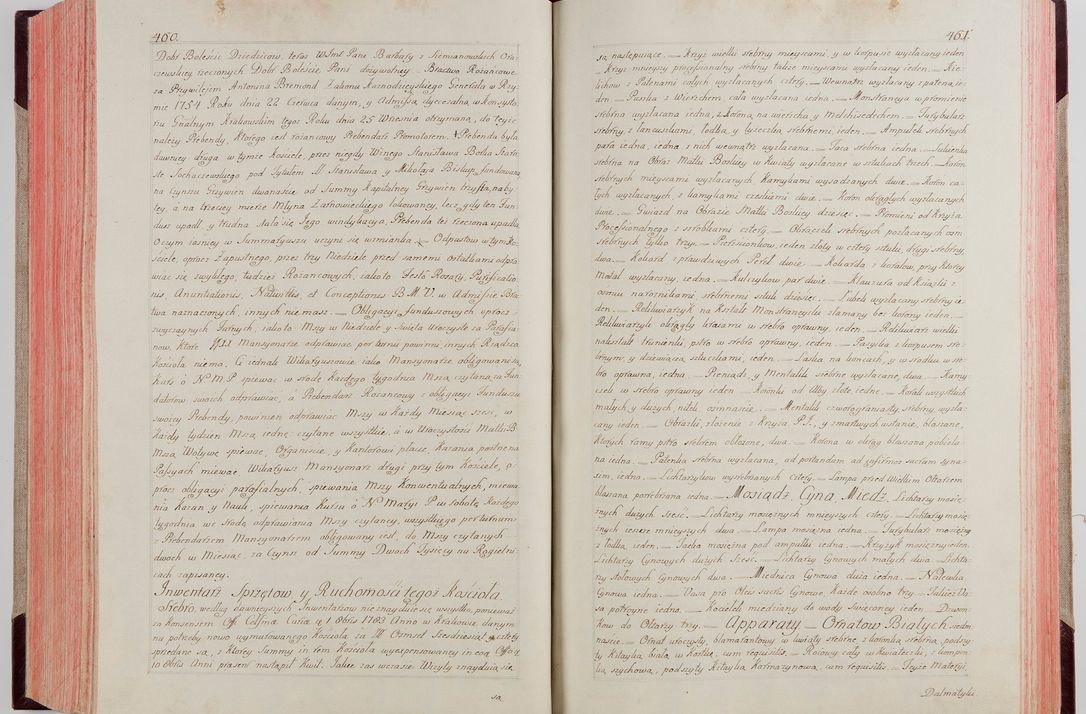 460.
Dobr Boleście Dziedzicow, teraz WJmć Pani Barbary z Siemianowskich
rzeczonych Dobr Boleście Pani dozywotney. Bractwo Rozancowe
za Przywilejem Antonina Bremond Zakonu Kaznodzieyskiego Generała w Rzy-
mie 1754 Roku dnia 22 Czerwca danym, y Admissą dyecezalną w Konsysto-
rzu Gnalnym Krakowskim tegoż Roku dnia 25 Wrzesnia otrzymaną, do teyże
należy Prebendy, ktorego jest rożancowy Prebendarz Promotorem. Prebenda była
dawniey druga w tymże Kościele, przez niegdy Winego Stanisława Borka
Sochaczewskiego pod Tytułem SS. Stanisława y Mikołaja Biskup. fundowana
na czynsz Grzywien dwanascie od Summy Kapitalney Grzywien trzysta, naby-
tey, a na trzeciey mierze Młyna Zarnowieckiego lokowaney, lecz gdy ten Fun-
dusz upadł, y trudna stała się Jego windykacya, Prebenda też rzeczona upadła
O czym iasniey w Summaryuszu uczyni się wzmianka. Odpustow w tym Ko-
ściele, oprocz Zapustnego, przez trzy Niedziele przed samemi Ostatkami odpra-
wiać się zwykłego, tudzież Rożancowych, iako to Festo Rosary, Purificatio-
nis, Anuntiationis, Nativitis, et Conceptiones B. M. V. w Admissie Bra-
twa naznaczonych, innych nie masz. Obligacyi funduszowych oprocz
zwyczaynych Farnych, iako to Mszy w Niedziele y Swięta Uroczyste za Parafia-
now, ktore Mansyonarze odprawiac per turni powinni innych Rządca
Kościoła niema. Ci iednak Wikaryuszowie iako Mansyonarze obligowani są
Kurs o N. M. P. spiewac, w srodę każdego tygodnia Mszą czytaną za Fun-
datorow swoich odprawiac, a Prebendarz Rozancowy z obligacyi Funduszu
swoiey Prebendy, powinien odprawiac Mszy w Każdy Miesiąc szesc, w
Każdy tydzien Mszą iednę czytane wszystkie, a w Uroczystosci Matki B.
Mszą Wotywę spiewac, Organiscie, y Kantorowi płacic, Kazania postne na
Passyach miewac. Wikaryusz Mansyonarz drugi przy tym Kosciele, o-
procz obligacyi parafialnych, spiewania Mszy Konwentualnych, miewa-
nia Kazan y Nauk, spiewania Kursu o N. Maryi P. w sobotę każdego
tygodnia, we srodę odprawiania Mszy czytaney, wszystkiego per turnum
z Prebendarzem Mansyonarzem obligowany jest, do Mszy czytanych
dwoch w Miesiąc, za Czynsz od Summy Dwoch Tysięcy na Rogielni-
cach zapisaney.
Inwentarz Sprzętow y Ruchomości tegoż Kościoła
Srebro, według dawnieyszych Inwentarzow nie znayduie się wszystko, ponieważ
za Konsensem Off. Celsma Curia 1 Obris 1783 Anno w Krakowie danym
na potrzeby nowo wymurowanego Kościoła za Zł. Osmset Siedziesiąt cztery
sprzedane są, z ktorey Summy in rem Kościoła wyexpensowaney in eoq Offo
10 Obris Anni praesen. nastąpił Kwit. Jakie zas wczasie Wizyty znayduią się
są

461.
są, następuiące. Krzyż wielki srebrny mieyscami, y w korpusie wyzłacany ieden
Krzyż mnieyszy processyonalny srebrny także mieyscami wyzłacany ieden. Kie-
lichow z Patenami całych wyzłacanych cztery. Wewnątrz wyzłacany z pateną ie-
den. Puszka z Wierzchem, cała wyzłacana iedna. Monstrancya w promienie
srebrna wyzłacana iedna, z Koroną na wierzchu, y Melchisedechem. Turybularz
srebrny, z łancuszkami, łodką, y łyżeczką srebrnemi, ieden. Ampułek srebrnych
para iedna, iedna z nich wewnątrz wyzłacana. Taca srebrna iedna. Sukienka
srebrna na Obraz Matki Boskiey w Kwiaty wyzłacane w sztukach trzech. Koron
srebrnych mieyscami wyzłacanych, Kamykami wysadzanych dwie. Koron ca-
łych wyzłacanych, z kamykami czeskiemi dwie. Koron okrągłych wyzłacanych
dwie. Gwiazd na Obrazie Matki Boskiey dziesięc. Promieni od Krzyża
Processyonalnego z srobkami cztery. Obrączek srebrnych pozłacanych osm
srebrnych tylko trzy. Piersionkow, ieden złoty w cztery sztuki, drugi srebrny,
dwa. Kokard z prawdziwych Pereł dwie. Kokarda z koralow, przy ktorey
Medal wyzłacany, iedna. Kulczykow par dwie. Klauzura od Książki z
osmu narożnikami, srebrnemi sztuk dziesięc. Kubek wyzłacany srebrny ie-
den. Relikwiarzyk na Kształt Monstrancyiki złamany bez korony ieden.
Relikwiarzyk okrągły bracami w srebro oprawny, ieden. Relikwiarz wielki
nakształt trunienki, pstro w srebro oprawny, ieden. Pacyfika z korpusem sre-
brnym, y dziewiącią sztuczkami, ieden. Laska na koncach, y w srodku w sre-
bro oprawna, iedna. Pieniądz, y Mentalik srebrne wyzłacane, dwa. Kamy-
czek w srebro oprawny ieden. Koronki od Alby złote iedne. Korali wszystkich
małych y dużych, nitek, osmnascie. Mentalik czworograniasty srebrny, wyzła-
cany ieden. Obrazki, złożenie z Krzyża P.J., y zmartwychwstanie, blaszane,
ktorych ramy pstro srebrem obłożone, dwa. Korona w okrąg blaszana pobiela-
na iedna. Patenka srebrna wyzłacana, ad portandam ad infirmos sacram syna-
xim, iedna. Lichtarzykow wysrebrzanych cztery. Lampa przed Wielkim Ołtarzem
blaszana posrebrzana iedna. Mosiądz, Cyna, Miedź. Lichtarzy mosię-
żnych dużych Sześć. Lichtarzy mosiężnych mnieyszych cztery. Lichtarzy mosię-
żnych ieszcze mnieyszych dwa. Lampa mosiężna iedna. Turybularz mosiężny
z łodką, ieden. Tacka mosiężna pod ampułki iedna. Krzyżyk mosiężny ieden.
Lichtarzy Cynowych dużych Sześć. Lichtarzy Cynowych małych dwa. Lichta-
rzy stołowych Cynowych dwa. Miednica Cynowa duża iedna. Nalewka
Cynowa iedna. Vasa pro Oleis sacris Cynowe, Każde osobno trzy. Takież Va-
sa potroyne iedno. Kociełek miedziany do wody Swięconey ieden. Dzwon-
kow do Ołtarzy trzy. Apparaty – Ornatow Białych siedm-
nascie. Ornat uroczysty, blamarantowy w kwiaty srebrne, z koronką srebrną, podszy-
ty Kitayką białą w Kostkę, cum requisitis. Różowy cały w kwiateczki, z kompon-
ką szychową, podszyty Kitayką karmazynową, cum requisitis. Teyże Materyi,
Dalmatyki